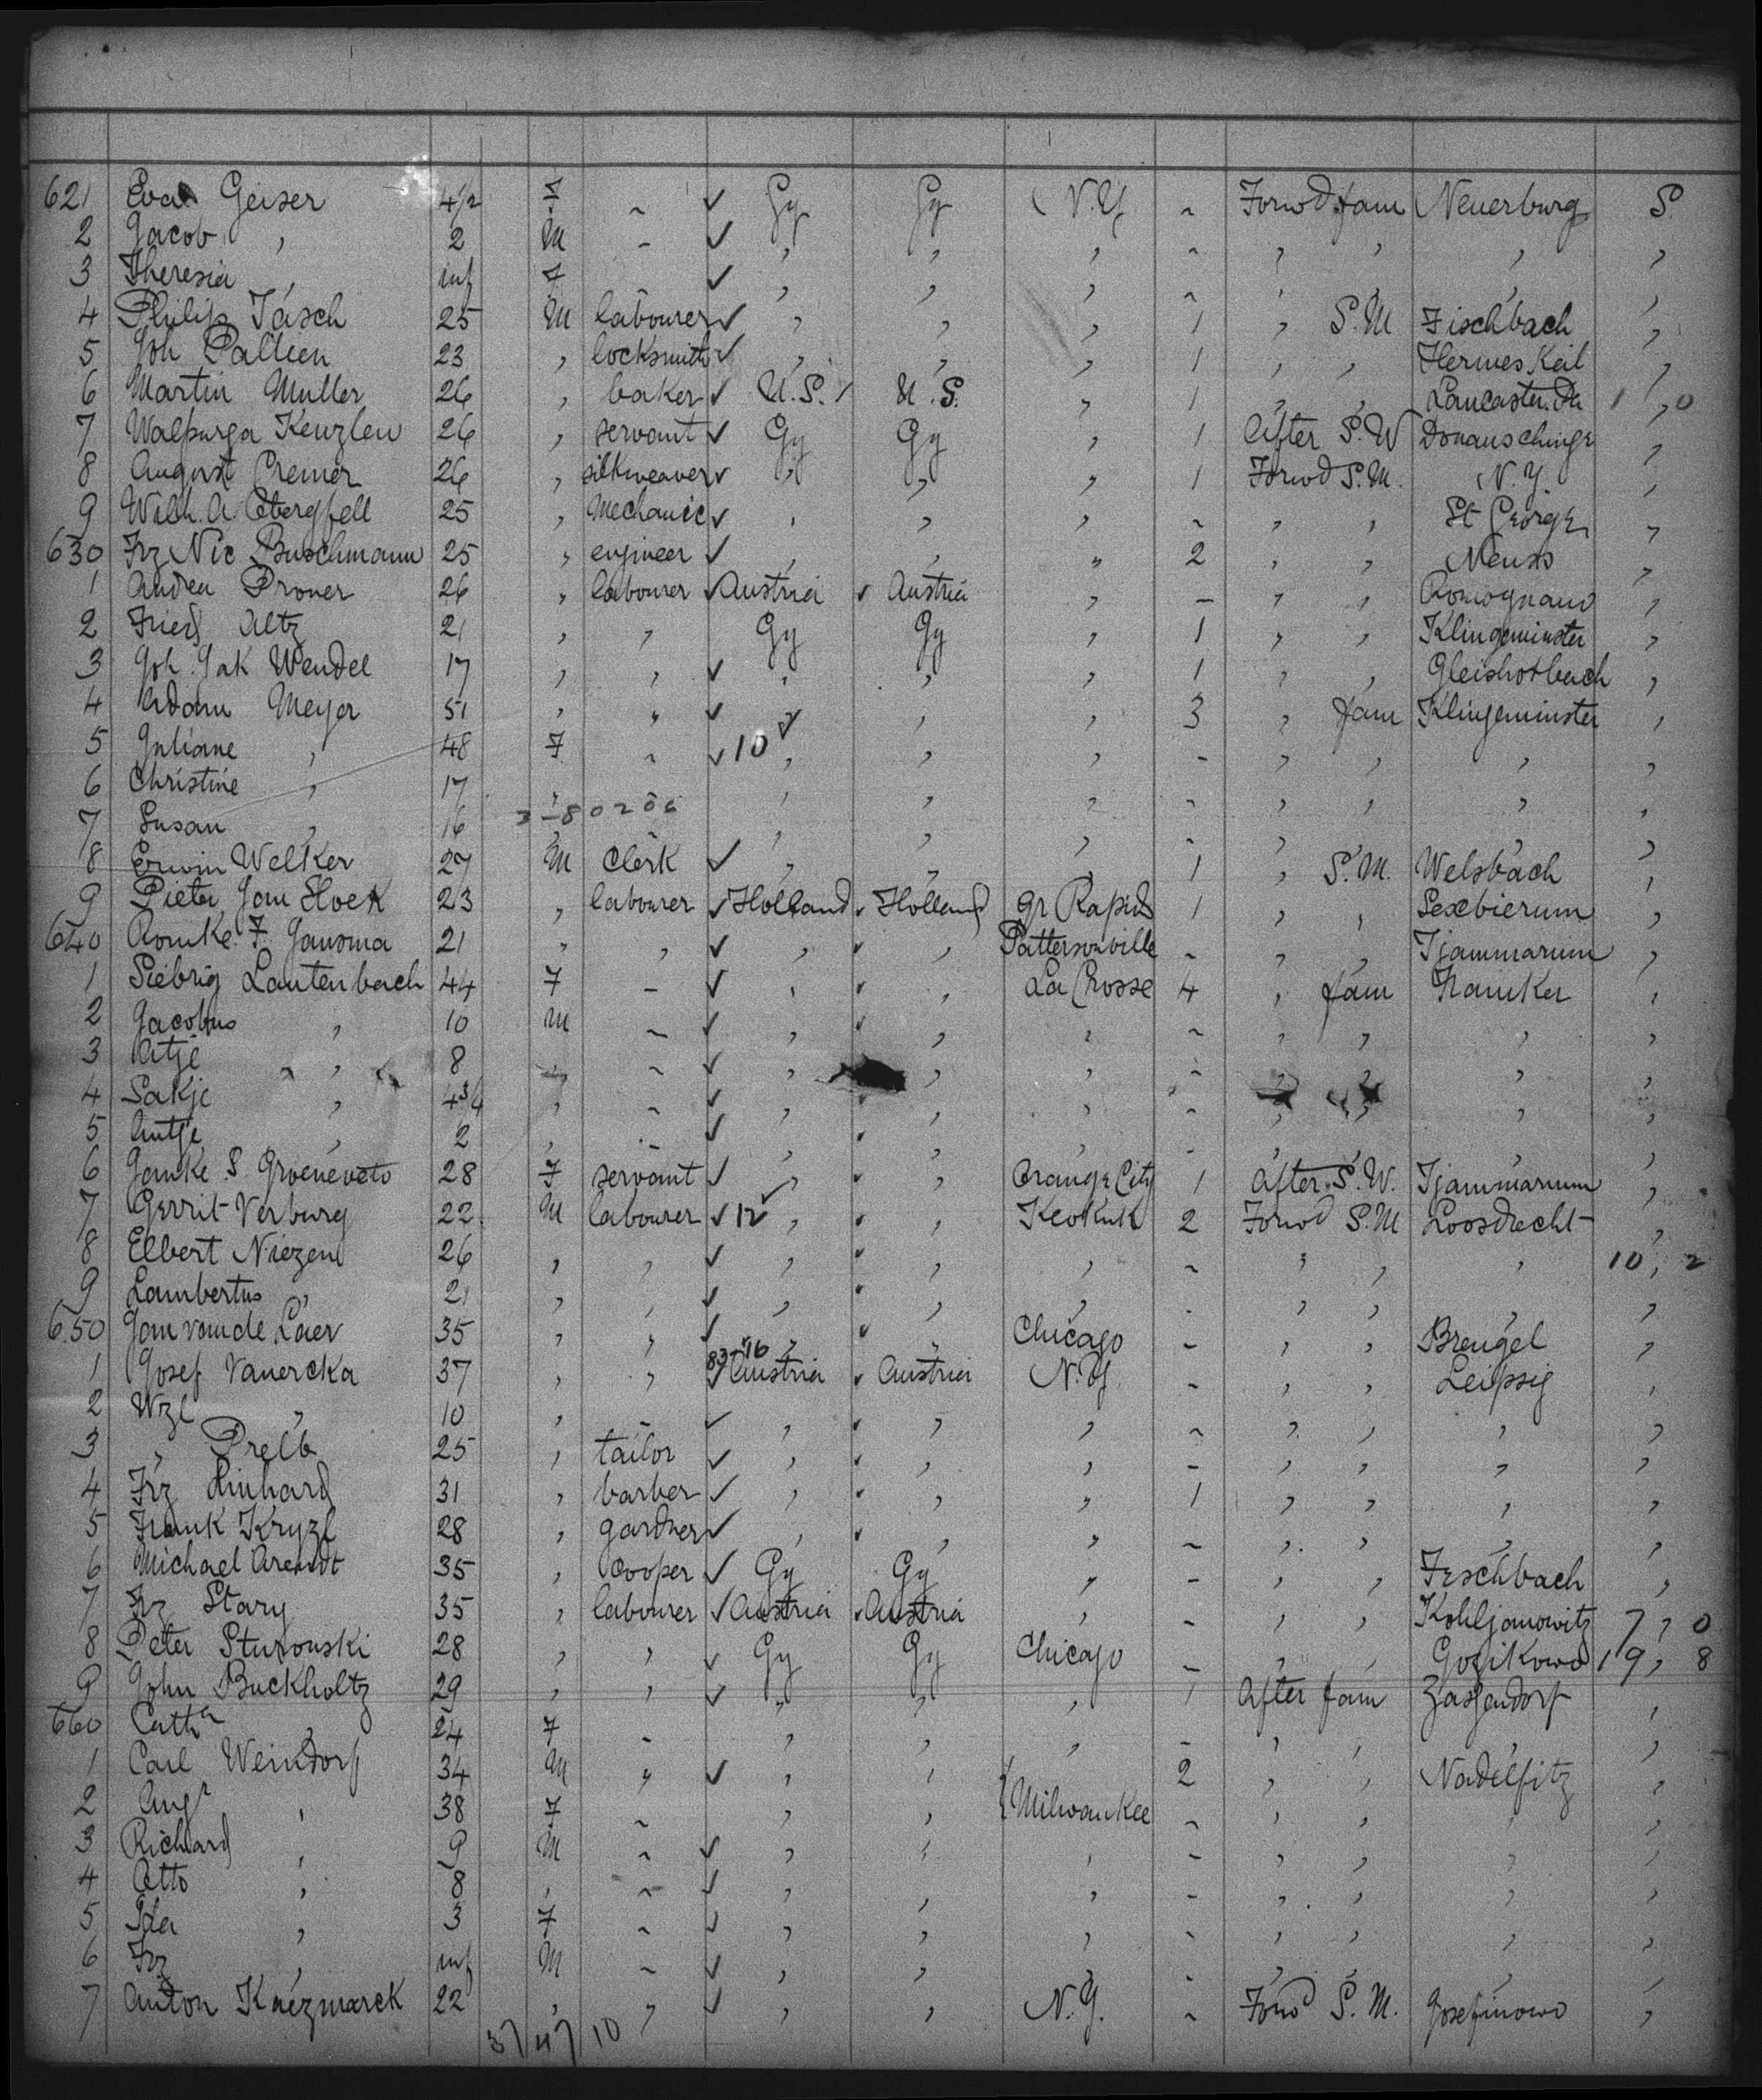 621 Eva Geiser 4/2 F - ✓ Gy Gy N.Y. - Forwd fam Neuerburg S.
2 Jacob , 2 M - ✓ , , , - , , , ,
3 Theresia , inf F ✓ , , , - , , , ,
4 Philip Tasch 25 M labourer ✓ , , , 1 , S.M Fischbach ,
5 Joh Palleen 23 , locksmith ✓ , , , 1 , , Hermes Keil ,
6 Martin Muller 26 , baker ✓ U.S. / U.S. , 1 , , Lancaster. Pa 1 , 0
7 Walpurga Kenzlen 26 , servant ✓ Gy Gy , 1 After S.W Donauschinge ,
8 August Cremer 26 , silkweaver ✓ , , , 1 Forwd S.M. N.Y. ,
9 Wilh. A Obergfell 25 , Mechanic ✓ , , , - , , St George ,
630 Frz Nic Buschmann 25 , engineer ✓ , , , 2 , , Neuss ,
1 Andea Proner 26 , labourer ✓ Austria ✓ Austria , - , , Romagnano ,
2 Fried Altz 21 , , Gy Gy , 1 , , Klingeminster ,
3 Joh. Jak Wendel 17 , , ✓ , , , 1 , , Gleishorbach ,
4 Adam Meyer 51 , , ✓ ✓ , , 3 , fam Klingeminster ,
5 Juliane , 48 F - ✓ 10 , , , - , , , ,
6 Christine , 17 , , , , - , , , ,
3-80206
7 Susan , 16 , , , , - , , , ,
8 Erwin Welker 27 M Clerk ✓ , , , 1 , S.M. Welsbach ,
9 Pieter Jan Hoek 23 , labourer ✓ Holland ✓ Holland Gr Rapids 1 , , Sexbierum ,
640 Romke F Jansma 21 , , ✓ , ✓ , Pattersonville - , , Tjammarum ,
1 Siebrig Lautenbach 44 F - ✓ , ✓ , La Crosse 4 , fam ,
2 Jacobus , 10 M - ✓ , ✓ , , - , , , ,
3 Atje , 8 , - ✓ , , , - , , , ,
4 Sakje , 4 3/4 , - ✓ , ✓ , , - , , , ,
5 Antje , 2 , - ✓ , ✓ , , - , , , ,
6 Janke S. Groeneveto 28 F servant ✓ , ✓ , Orange City 1 After S.W. Tjammarum ,
7 Gerrit Verburg 22 M labourer ✓ 12 ✓ , ✓ , Keokuk 2 Forwd S.M Loosdrecht ,
8 Elbert Niezen 26 , , ✓ , ✓ , , - , , , 10, 2
9 Lambertus , 21 , , ✓ , ✓ , , - , , , ,
650 Jan van de Laer 35 , , ✓ , ✓ , Chicago - , , Brengel ,
83-16
1 Josef Vanercka 37 , , ✓ Austria ✓ Austria N.Y. - , , Leipsig ,
2 Wzl , 10 , - ✓ , ✓ , , - , , , ,
3 , Prelb 25 , tailor ✓ , ✓ , , - , , , ,
4 Frz Linhard 31 , barber ✓ , ✓ , , 1 , , , ,
5 Frank Kryzl 28 , gardner ✓ , ✓ , , - , , , ,
6 Michael Arendt 35 , Cooper ✓ Gy Gy , - , , Feschbach ,
7 Frz Stary 35 , labourer ✓ Austria ✓ Austria , - , , Kohljanowitz 7, 0
8 Peter Sturonski 28 , , ✓ Gy Gy Chicago - , , Gozikowo 19, 8
9 John Buckholtz 29 , , ✓ , , , 1 After fam Zassendorf ,
660 Catha , 24 F - , , , - , , , ,
1 Carl Weindorf 34 M , ✓ , , 2 , , Nadelfitz ,
2 Augt , 38 F - , , { Milwaukee - , , , ,
3 Richard , 9 M - ✓ , , , - , , , ,
4 Otto , 8 , - ✓ , , , - , , , ,
5 Ida , 3 F - ✓ , , , - , , , ,
6 Frz , inf M - ✓ , , , - , , , ,
7 Anton Kaczmarek 22 , , ✓ , , N.Y. - Forwd S.M. Josefinowo ,
37 47 10